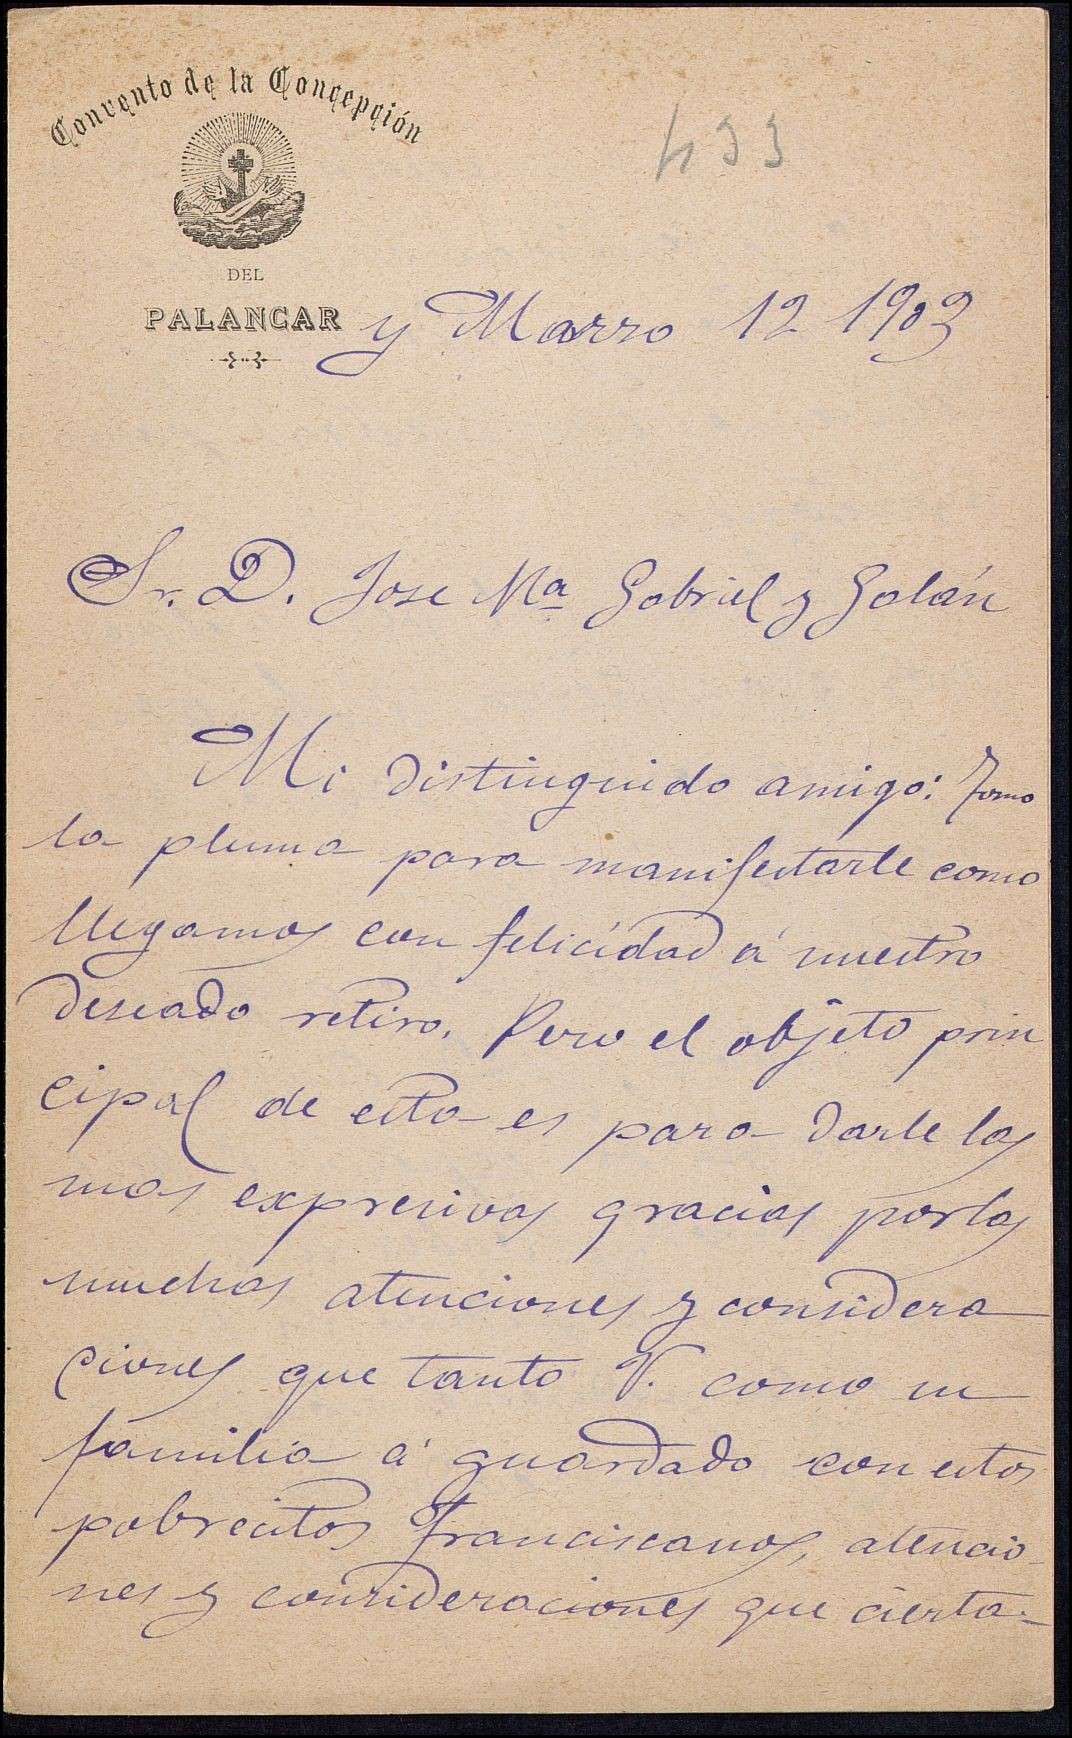 Convento de la Concepción
433
DEL
PALANCAR
y Marzo 12 1903
Sr. D. Jose Mª Gabriel y Galán
Mi distinguido amigo: Tomo
la pluma para manifestarle como
llegamos con felicidad á nuestro
deseado retiro. Pero el objeto prin
cipal de esta es para darle las
mas expresivas gracias por las
muchas atenciones y considera
ciones que tanto V. como su
familia á guardado con estos
pobrecitos Franciscanos, atencio-
nes y consideraciones que cierta-